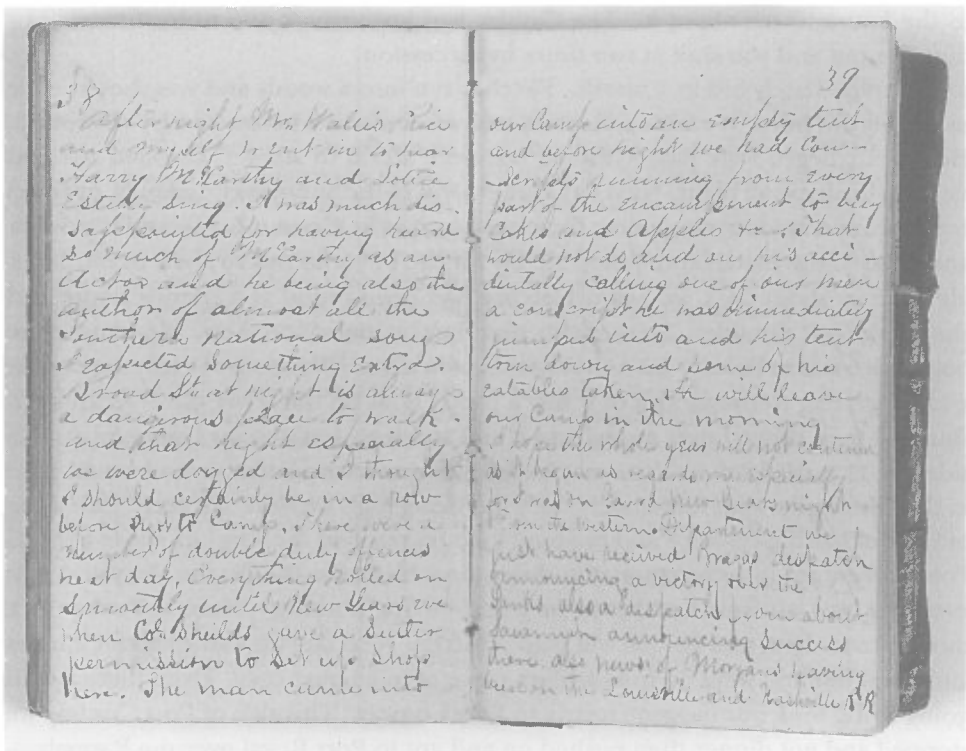 38
After night Mr. Wallis Rice
and myself went in to hear
Harry McCarthy and Lottie
Estelle sing. I was much dis-
sappointed for having heard
so much of McCarthy as an
Actor and he being also the
author of almost all the
Southern National songs
I expected something Extra.
Broad St. at night is always
a dangerous place to walk.
and that night especially
we were dogged and I thought
I should certainly be in a row
before I got to Camp. There were a
number of double duty offences
next day. Everything rolled on
smoothly until New Years eve
when Col. Sheilds gave a Sutler
permission to set up shop
here. The man came into
39
our Camp into an empty tent
and before night we had Con-
-scripts running from every
part of the encampment to buy
Cakes and Apples &c. That
would not do and on his acci-
dentally calling one of our men
a conscript he was immediately
jumped into and his tent
torn down and some of his
eatables taken. He will leave
our Camp in the morning
I hope the whole year will not continue
as it began as regards me especially
for I was on Guard New Years night
From the Western Department we
just have recieved Braggs despatch
announcing a victory over the
Yanks, also a despatch from about
Savannah announcing success
there also news of Morgans having
been on the Louisville and Nashville R R